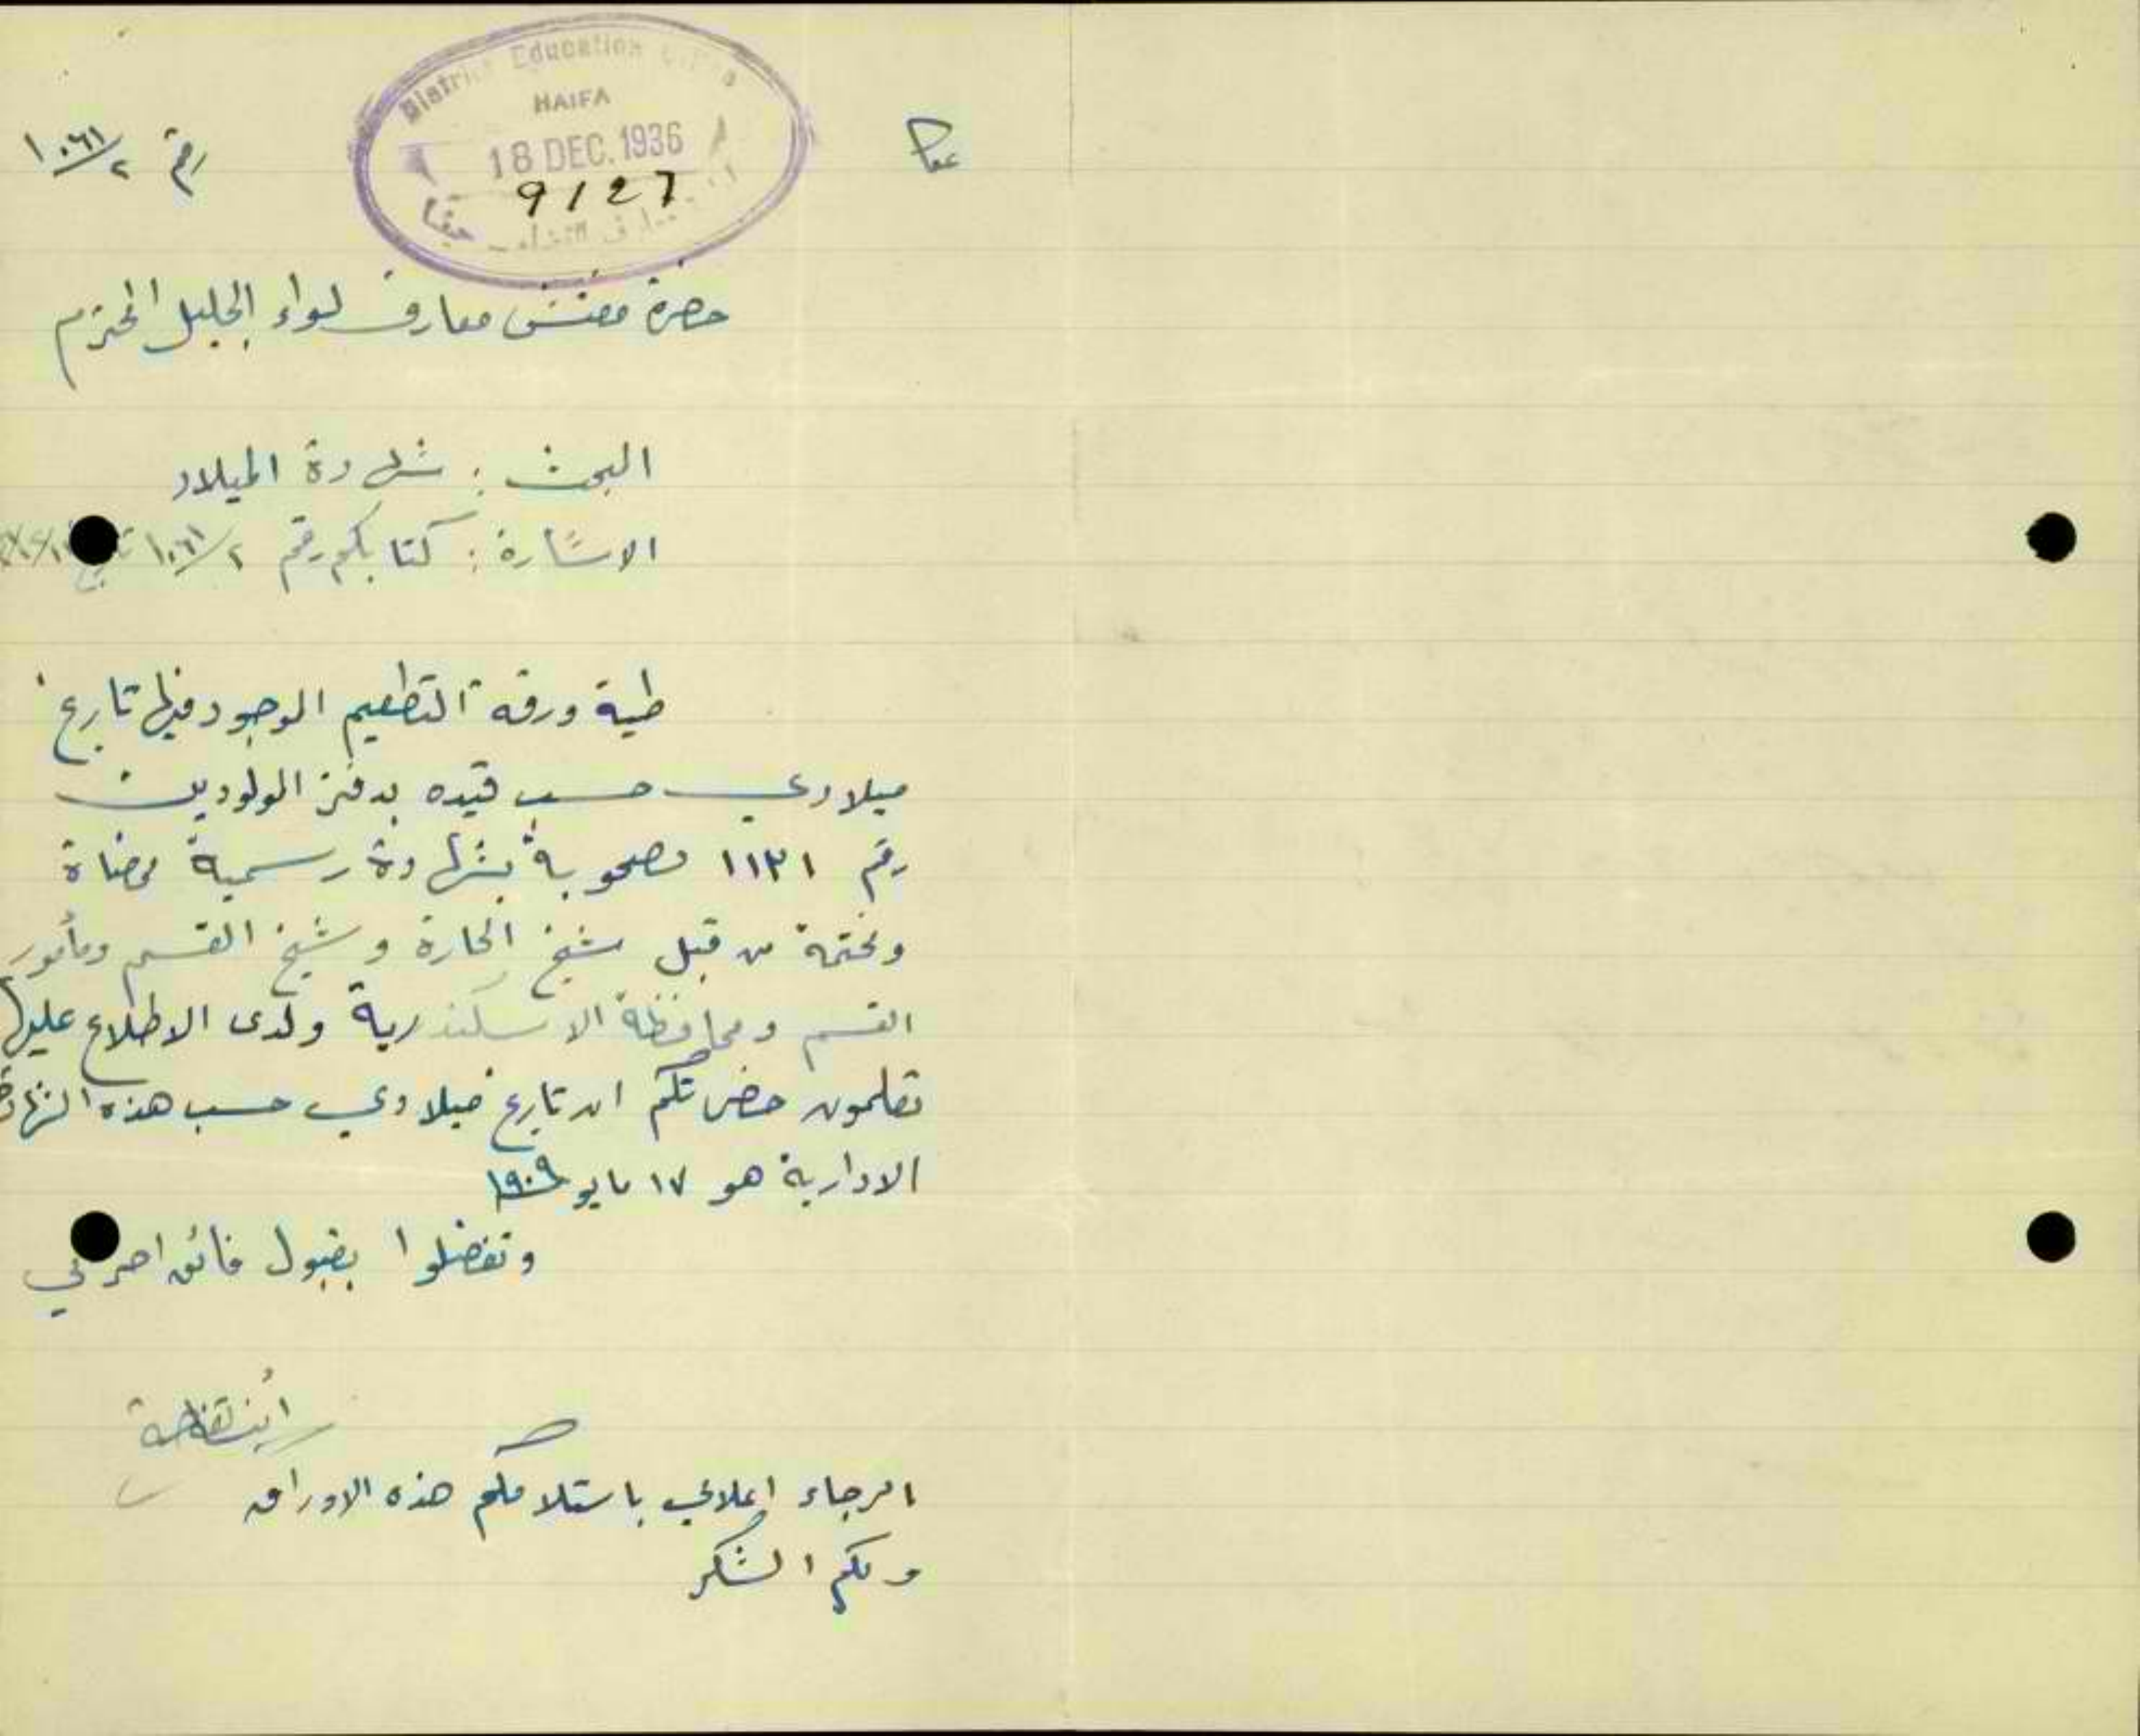 District Education
HAIFA
18 DEC. 1936
9127
حيفا
عكا
رقم ١٠٦١/٢
حضرة مفتش معارف لواء الجليل المحترم
البحث : شهادة الميلاد
الاشارة : كتابكم رقم ١٠٦١/٢
طية ورقة التطعيم الموجود فيها تاريخ
ميلادي حسب قيده بدفتر المولودين
رقم ١١٣١ مصحوبة بشهادة رسمية ممضاة
ومختمة من قبل شيخ الحارة و شيخ القسم ومأمور
القسم ومحافظة الاسكندرية ولدى الاطلاع عليها
تعلمون حضرتكم ان تاريخ ميلادي حسب هذه الشهادة
الادارية هو ١٧ مايو ١٩٠٩
وتفضلوا بقبول فائق احترامي
الرجاء اعلامي باستلامكم هذه الاوراق
ولكم الشكر